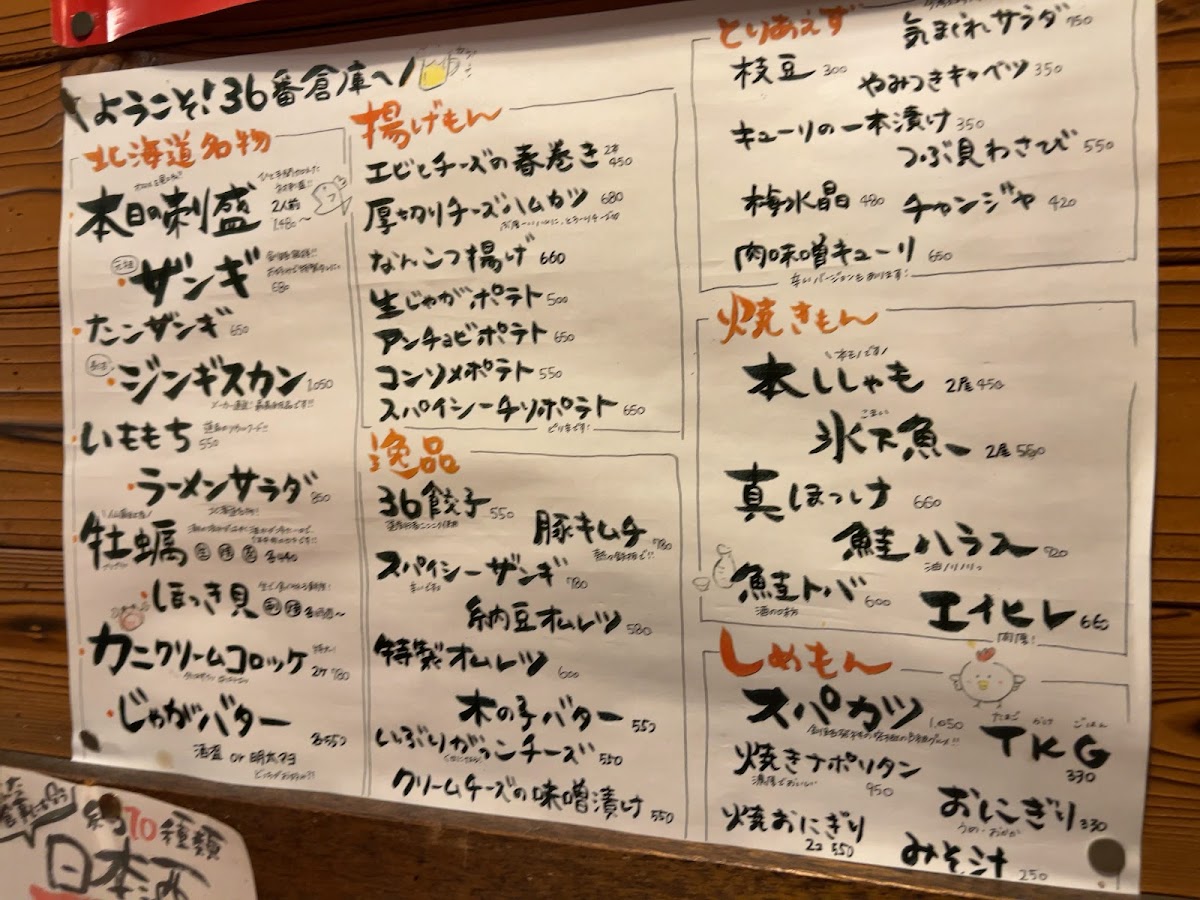 ようこそ!36番倉庫へ
北海道名物
本日の刺盛
2人前
1480~
元祖
ザンギ
680
たこザンギ 650
ジンギスカン 1.050
いももち
550
ラーメンサラダ 850
牡蠣
ほっき貝
カニクリームコロッケ 2ケ 780
じゃがバター 各550
酒盗 or 明太マヨ
揚げもん
エビとチーズの春巻き 2本 450
厚切りチーズハムカツ 680
なんこつ揚げ 660
生じゃがポテト 500
アンチョビポテト 650
コンソメポテト 550
スパイシーチリポテト 650
ピリ辛です!
逸品
36餃子 550
豚キムチ 780
熱々鉄板で!!
スパイシーザンギ 780
納豆オムレツ 580
特製オムレツ 600
木の子バター 550
いぶりがっこチーズ 550
クリームチーズの味噌漬け 550
とりあえず
気まぐれサラダ 750
枝豆 300
やみつきキャベツ 350
キューリの一本漬け 350
つぶ貝わさび 550
梅水晶 480
チャンジャ 420
肉味噌キューリ 650
辛いバージョンもあります!
焼きもん
本ししゃも 2尾 450
こまい
氷下魚 2尾 550
真ほっけ 660
鮭ハラス 720
鮭トバ 600
エイヒレ 660
肉厚!
しめもん
スパカツ 1.050
たまご かけ ごはん
TKG
330
焼きナポリタン
950
おにぎり 330
うめ・おかか
焼おにぎり
2コ 550
みそ汁 250
約70種類
日本酒